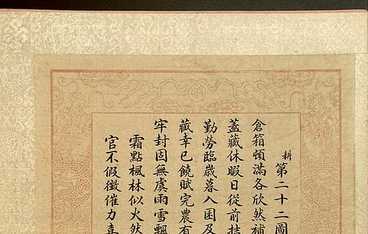 耕第二十二圖
倉箱頓滿各欣然補
蓋藏休暇日從前拮
勤勞臨歲暮入困及
藏幸已饒賦完農有
牢封固無虞雨雪飄
霜點楓林似火然
官不假徵催力